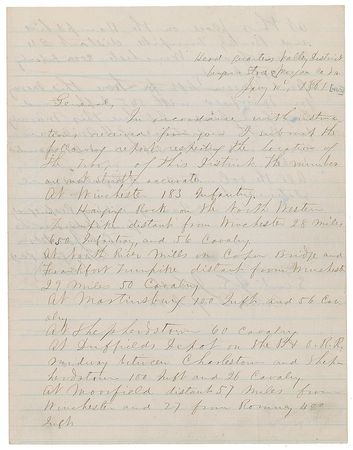 Head Quarters Valley District
Morgan Co Va
Jany 1861
General,
In accordance with instruc
tions received from you I submit the
following report respecting the location of
the troops of this District the numbers
are not strictly accurate.
At Winchester 183 Infantry.
Hanging Rock on the North Western
Turnpike distant from Winchester 28 miles
650 Infantry, and 56 Cavalry
At North River Mills on Capon Bridge and
Frankfort Turnpike distant from Winchester
27 Miles 50 Cavalry
At Martinsburg 100 Infty and 56 Cav
alry
At Shepherdstown 60 Cavalry
At Duffields Depot on the B & O. R. R.
midway between Charlestown and Shep-
herdstown 100 Inft and 26 Cavalry
At Moorfield distant 57 Miles from
Winchester and 27 from Romney 400
Infty